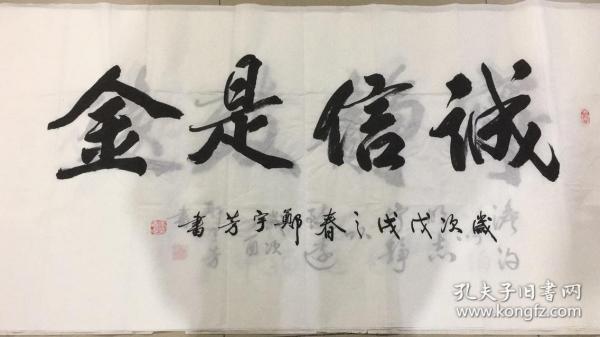 誠信是金
歲次戊戌之春鄭宇芳書
孔夫子旧书网
www.kongfz.com